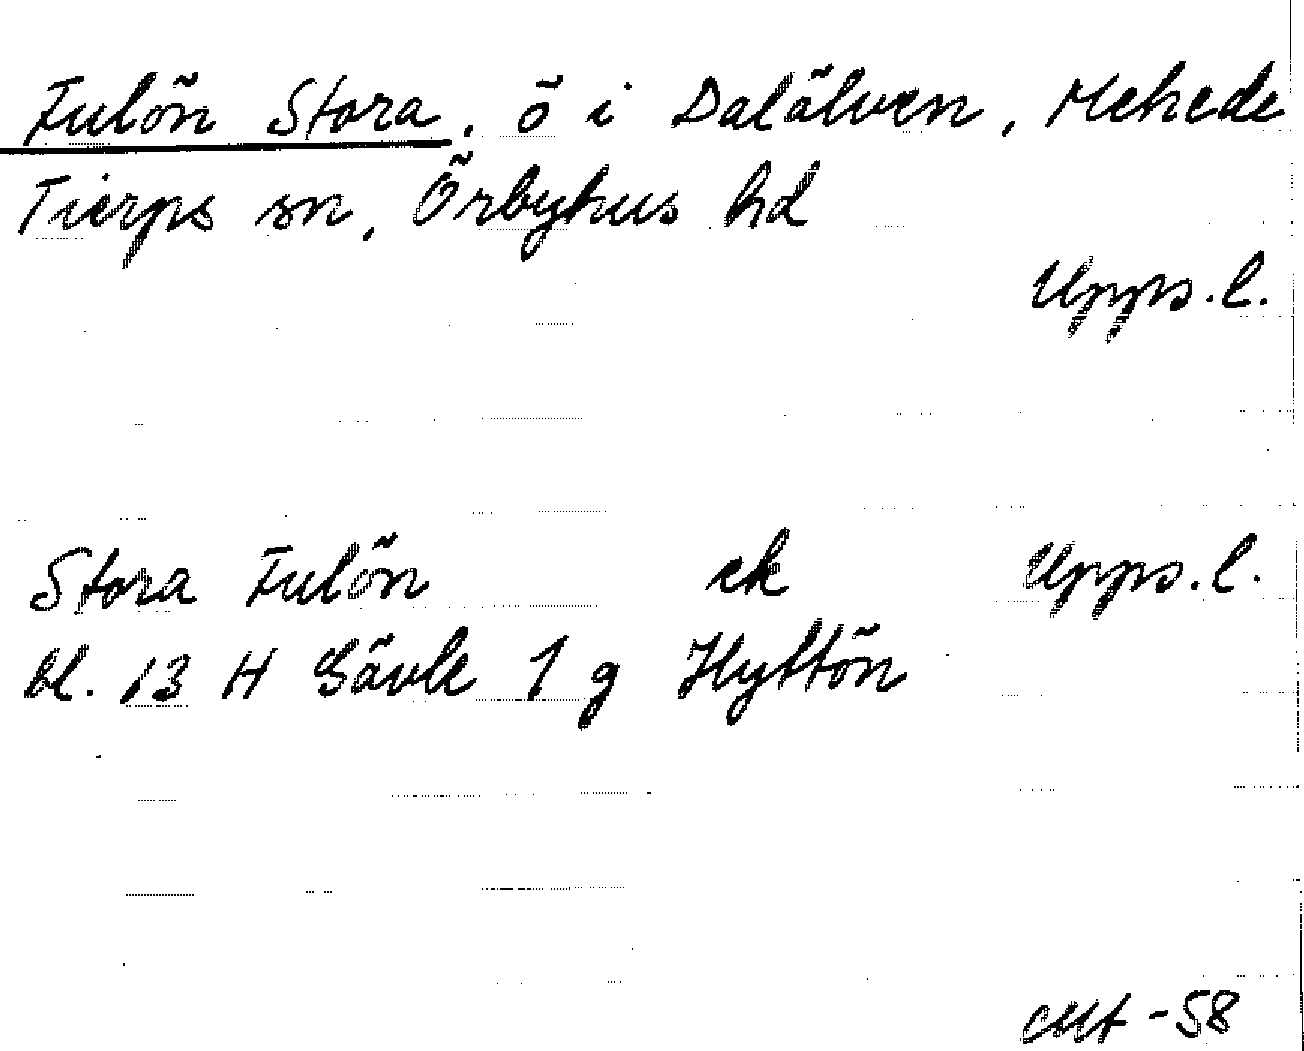 Fulön Stora, ö i Dalälven, Mehede
Tierps sn, Örbyhus hd
Upps.l.
Stora Fulön ek Upps.l.
bl. 13 H Gävle 1 g Hyttön
-58